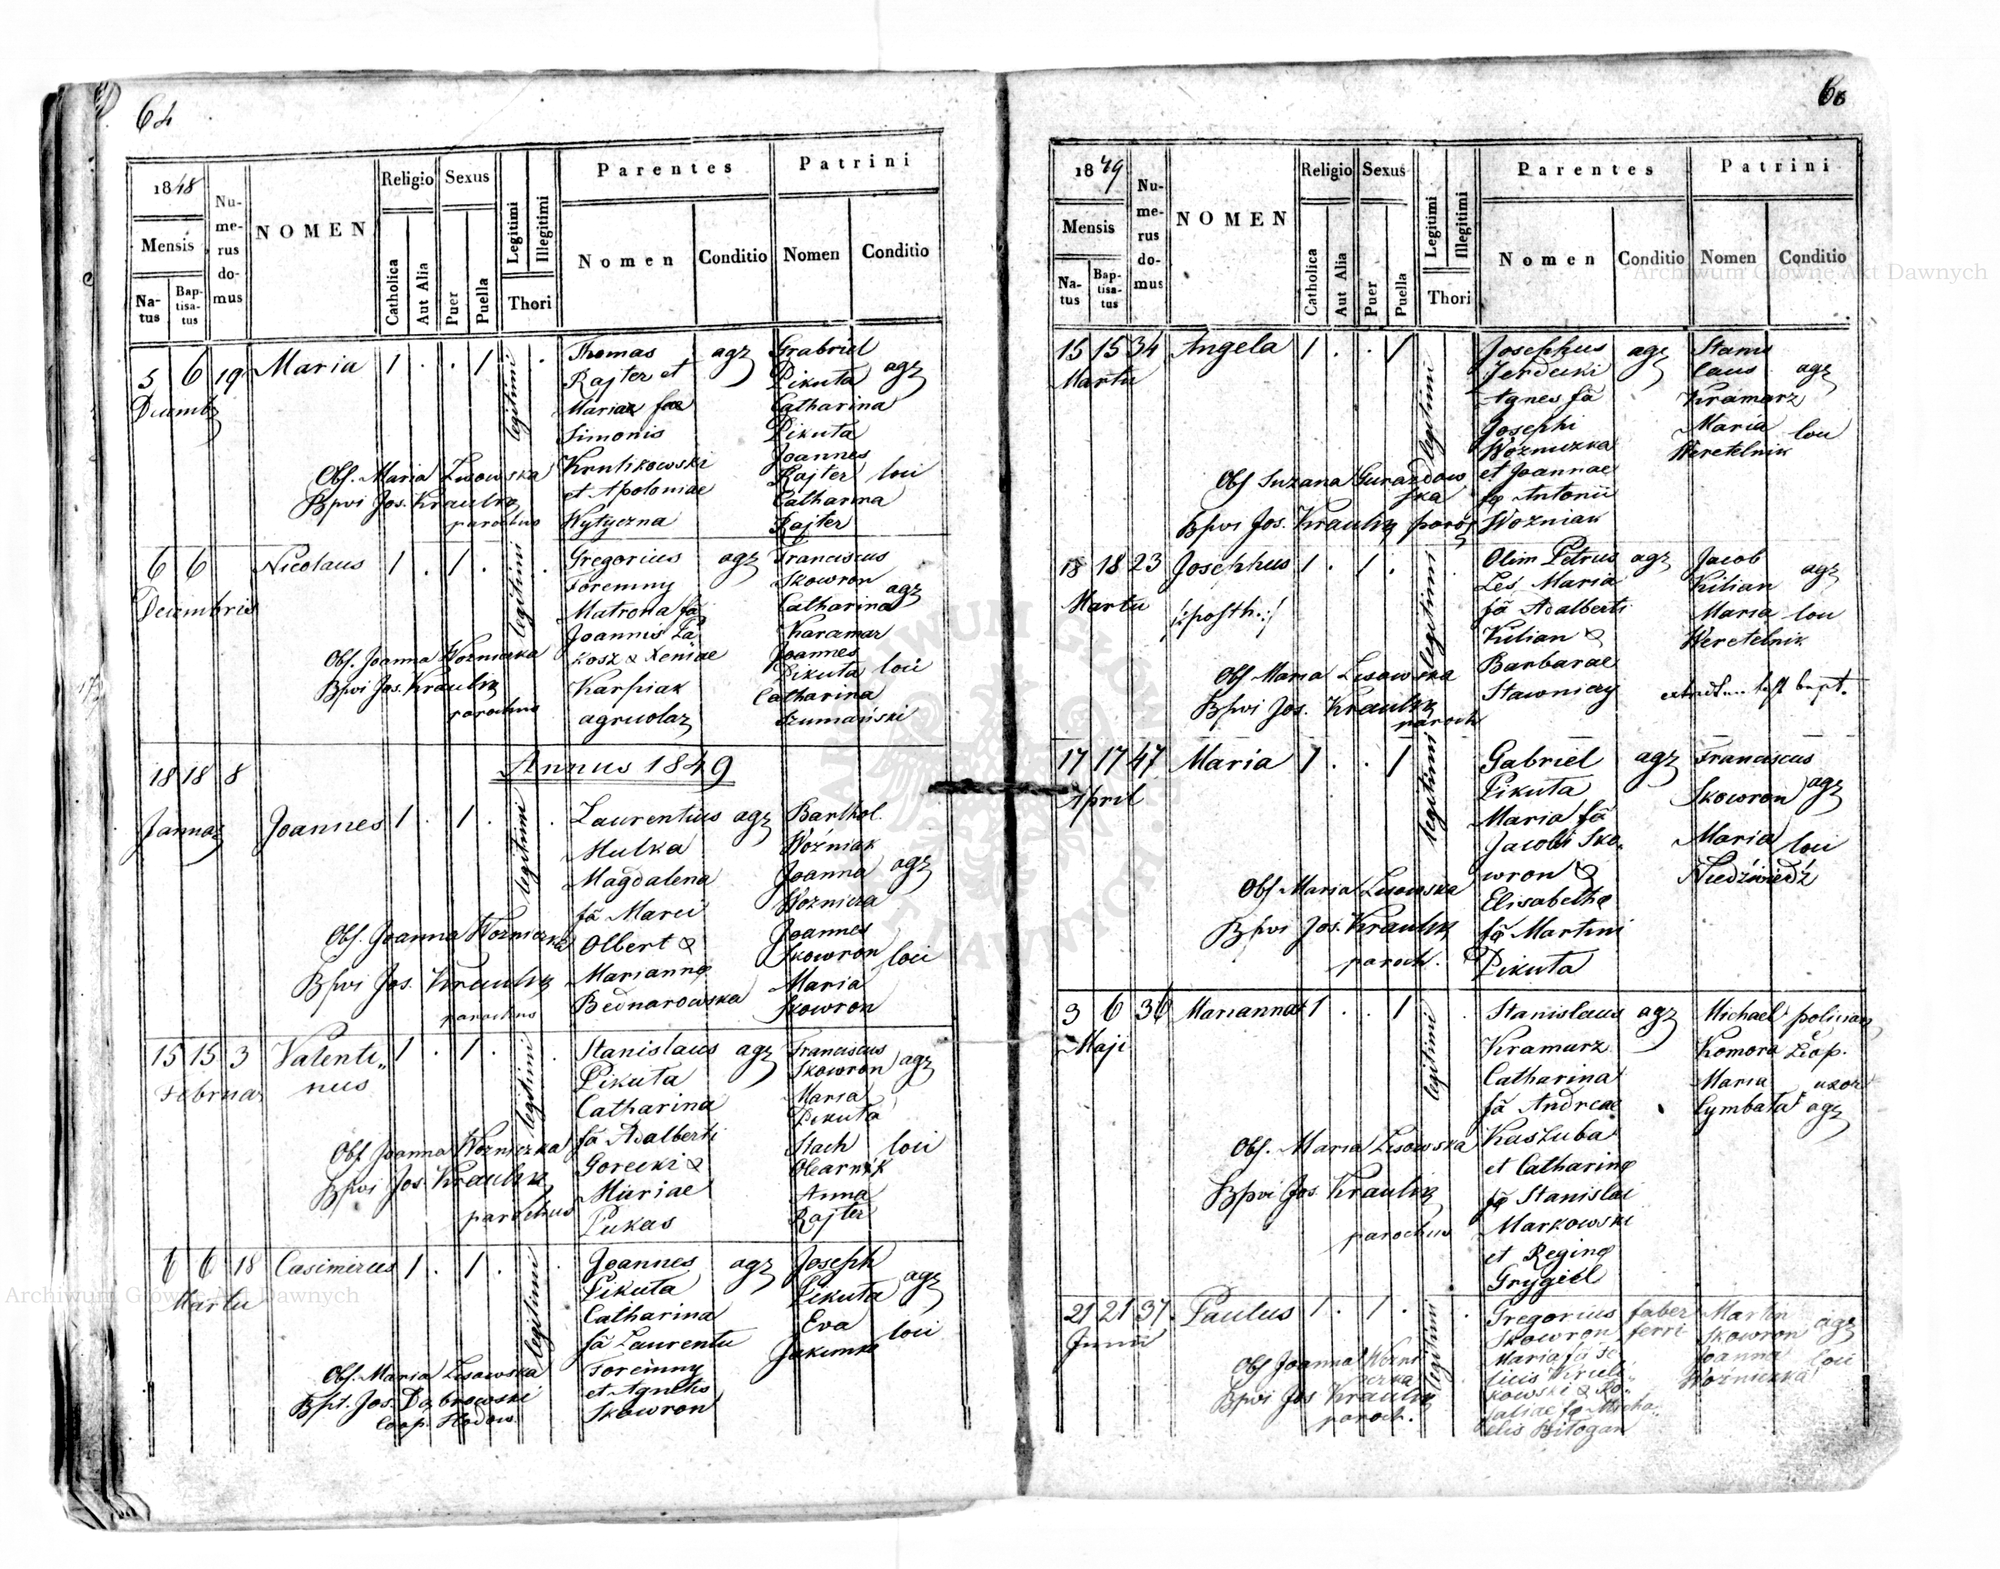 64
1848
Mensis
Na-
tus
Bap-
tisa-
tus
Nu-
me-
rus
do-
mus
NOMEN
Religio
Catholica
Aut Alia
Sexus
Puer
Puella
Legitimi
Illegitimi
Thori
Parentes
Nomen
Conditio
Patrini
Nomen
Conditio
5 6 19 Maria 1 . . 1 legitimi .
Decembr
Thomas agr
Rajter et
Mariae fae
Simonis
Krulikowski
et Apoloniae
Wytyczna
Grabriel
Pikuta agr
Catharina
Pikuta
Joannes
Rajter loci
Catharina
Rajter
Obs. Maria Lisowska
Bpvi Jos. Kraulig
parochus
6 6 Nicolaus 1 . 1 . legitimi .
Decembris
Gregorius agr
Foremny
Matrona fa
Joannis Ła
kosz & Xeniae
Karpiak
agricolar
Franciscus
Skowron agr
Catharina
Karamar
Joannes
Pikuta loci
Catharina
Szumański
Obs. Joanna Wozniczka
Bpvi Jos. Kraulig
parochus
Annus 1849
18 18 8
Januar Joannes 1 . 1 . legitimi .
Laurentius agr
Mulka
Magdalena
fa Marci
Olbert &
Mariannae
Bednarowska
Barthol.
Woźniak
Joanna agr
Woznicza
Joannes
Skowron loci
Maria
Skowron
Obs. Joanna Wozniczka
Bpvi Jos. Kraulig
parochus
15 15 3 Valenti-
nus 1 . 1 . legitimi .
Februar
Stanislaus agr
Pikuta
Catharina
fa Adalberti
Gorecki &
Mariae
Pukas
Franciscus
Skowron agr
Maria
Pikuta
Stach loci
Olearnik
Anna
Rajter
Obs Joanna Wozniczka
Bpvi Jos. Kraulig
parochus
6 6 18 Casimirus 1 . 1 . legitimi .
Martii
Joannes agr
Pikuta
Catharina
fa Laurentii
Foremny
et Agnetis
Skowron
Joseph
Pikuta agr
Eva loci
Obs. Maria Lisowska
Bpt. Jos. Dąbrowski
Coop. Hodow.
1849
Mensis
Na-
tus
Bap-
tisa-
tus
Nu-
me-
rus
do-
mus
NOMEN
Religio
Catholica
Aut Alia
Sexus
Puer
Puella
Legitimi
Illegitimi
Thori
Parentes
Nomen
Conditio
Patrini
Nomen
Conditio
15 15 34 Angela 1 . . 1 legitimi
Martii
Josephus agr
Agnes fa
Josephi
Wozniczka
et Joannae
fae Antonii
Wozniak
Stanis
laus agr
Kramarz
Maria loci
Weretelnik
Obs Suzana Gurazdow
ska
Bpvi Jos. Kraulig paroch
18 18 23 Josephus 1 . 1 . legitimi
Martii /:posth.:/
Olim Petrus agr
Les Maria
fa Adalberti
Kilian &
Barbarae
Stawniczy
Jacob
Kilian agr
Maria loci
Weretelnik
Obs Maria Lisowska
Bpvi Jos. Kraulig
paroch
17 17 47 Maria 1 . . 1 legitimi
April
Gabriel agr
Pikuta
Maria fa
Jacobi Sko-
wron &
Elisabethae
fa Martini
Pikuta
Franciscus
Skowron agr
Maria loci
Niedźwiedź
Obs Maria Lisowska
Bpvi Jos. Kraulig
paroch.
3 6 36 Marianna 1 . . 1 legitimi .
Maji
Stanislaus agr
Kramarz
Catharina
fa Andreae
Kaszuba
et Catharinae
fae Stanislai
Markowski
et Reginae
Grygiel
Michael
Komora Leop.
Maria uxor
Cymbała agr
Obs. Maria Lisowska
Bpvi Jos. Kraulig
parochus
21 21 37 Paulus 1 . 1 . legitimi .
Junii
Gregorius faber
Skowron ferri
Maria fa Fe
licis Kruli-
kowski & Ro-
saliae fae Micha-
elis Bitogan
Martin agr
Skowron
Joanna loci
Wozniczka
Obs Joanna Wozni
czka
Bpvi Jos Kraulig
paroch.
Archiwum Główne Akt Dawnych
Archiwum Główne Akt Dawnych